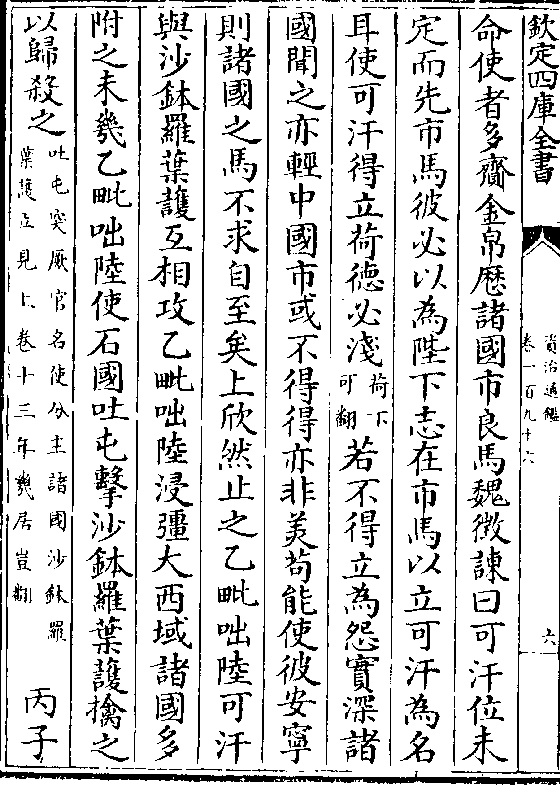 欽定四庫全書
資治通鑑
卷一百九十六
六
命使者多齎金帛歷諸國市良馬魏徵諫曰可汗位未
定而先市馬彼必以為陛下志在市馬以立可汗為名
耳使可汗得立荷德必淺荷下可翻若不得立為怨實深諸
國聞之亦輕中國市或不得得亦非美苟能使彼安寧
則諸國之馬不求自至矣上欣然止之乙毗咄陸可汗
與沙鉢羅葉護互相攻乙毗咄陸浸彊大西域諸國多
附之未幾乙毗咄陸使石國吐屯擊沙鉢羅葉護擒之
以歸殺之吐屯突厥官名使分主諸國沙鉢羅葉護立見上卷十三年幾居豈翻丙子